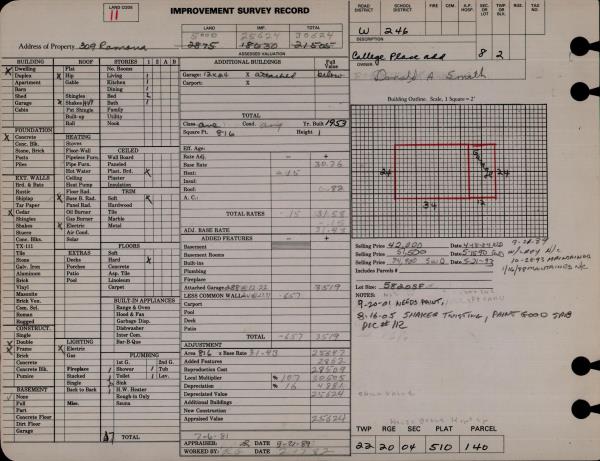 LAND CODE
11
IMPROVEMENT SURVEY RECORD
LAND IMP. TOTAL
5000 25624 30624
2875 18630 21505
ASSESSED VALUATION
Address of Property 309 Ramona
ROAD DISTRICT SCHOOL DISTRICT FIRE CEM. A.P. SEC. OR LOT TWP OR BLK. RGE. TAX NO.
W 246
DESCRIPTION
College Place add 8 2
OWNER
Donald A Smith
BUILDING ROOF STORIES 1 2 A B
Dwelling Flat No. Rooms
Duplex Hip Living
Apartment Gable Kitchen
Barn Dining
Shed Shingles Bed
Garage Shakes Bath
Cabin Pat. Shingle Family
Built-up Utility
Roll Nook
FOUNDATION HEATING
Concrete Stoves
Conc. Blk. Floor-Wall CEILED
Stone, Brick Pipeless Furn. Wall Board
Posts Pipe Furn. Paneled
Piles Hot Water Plast. Brd.
Ceiling Plaster
EXT. WALLS Heat Pump Insulation
Brd. & Bats Floor Rad. TRIM
Rustic Base B. Rad. Soft
Shiplap Panel Rad. Hardwood
Tar Paper Oil Burner Tile
Cedar Gas Burner Marble
Shingles Electric Metal
Shakes Air Cond.
Stucco Solar
Conc. Blks. FLOORS
TX-111 EXTRAS Soft
Tile Decks Hard
Stone Porches Concrete
Galv. Iron Patio Asp. Tile
Aluminum Pool Linoleum
Brick Carpet
Vinyl
Masonite BUILT-IN APPLIANCES
Brick Ven. Range & Oven
Com. Sel. Hood & Fan
Roman Garbage Disp.
Rugged Dishwasher
CONSTRUCT. Inter Com.
Single Bar-B-Que
Double LIGHTING
Frame Electric PLUMBING
Brick Gas 1st G. 2nd G.
Concrete Fireplace Shower Tub
Concrete Blk. Stacked Toilet Lav.
Pumice Single Sink
BASEMENT Back to Back H.W. Heater
None Rough-in Only
Full Misc. Sauna
Part
Concrete Floor
Dirt Floor
Garage
TOTAL
ADDITIONAL BUILDINGS Full Value
Garage: 12x24 X attached below
Carport: X
TOTAL
Class ave Cond. avg Yr. Built 1953
Square Ft. 816 Height 1
Eff. Age:
Rate Adj. - +
Base Rate 30.76
Heat: -.15
Insul:
Roof: .82
A. C.:
TOTAL RATES -.15 31.58
-.15
ADJ. BASE RATE 31.43
ADDED FEATURES - +
Basement
Basement Rooms
Built-ins
Plumbing
Fireplace
Attached Garage 3519
LESS COMMON WALL -657
Carport
Pool
Deck
Patio
TOTAL -657 3519
ADJUSTMENT
Area 816 x Base Rate 31.43 25647
Added Features 2862
Reproduction Cost 28509
Local Multiplier % 107 30505
Depreciation % 16 4881
Depreciated Value 25624
Additional Buildings
New Construction
Appraised Value 25624
7-6-81
APPRAISER DATE 9-21-89
WORKED BY DATE
Building Outline. Scale, 1 Square = 2'
24 Garage 24
34 12
Selling Price 42,000 Date
Selling Price 51,500 Date 5-15-90 SWD
Selling Price 74,900 SWD Date 5-21-93
Includes Parcels #
Lot Size:
NOTES:
9-20-01 NEEDS PAINT,
8-16-05 SHAKES TWISTING, PAINT GOOD
PIC # 112
TWP RGE SEC PLAT PARCEL
22 20 04 510 140